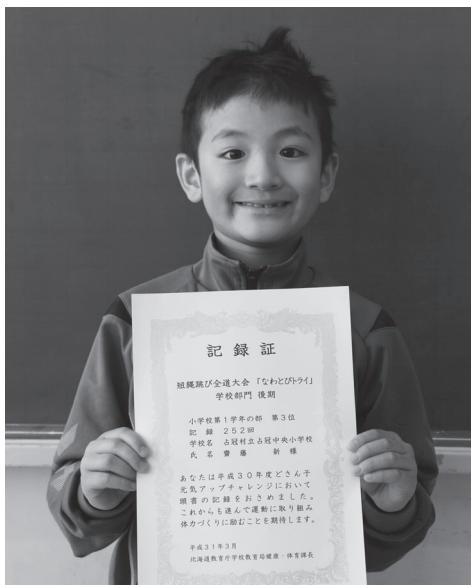 記録証
短縄跳び全道大会「なわとびトライ」
学校部門 後期
小学校第1学年の部 第3位
記録 252回
学校名 占冠村立占冠中央小学校
氏名 齋藤 新 様
あなたは平成30年度どさん子
元気アップチャレンジにおいて
頭書の記録をおさめました。
これからも進んで運動に取り組み
体力づくりに励むことを期待します。
平成31年3月
北海道教育庁学校教育局健康・体育課長